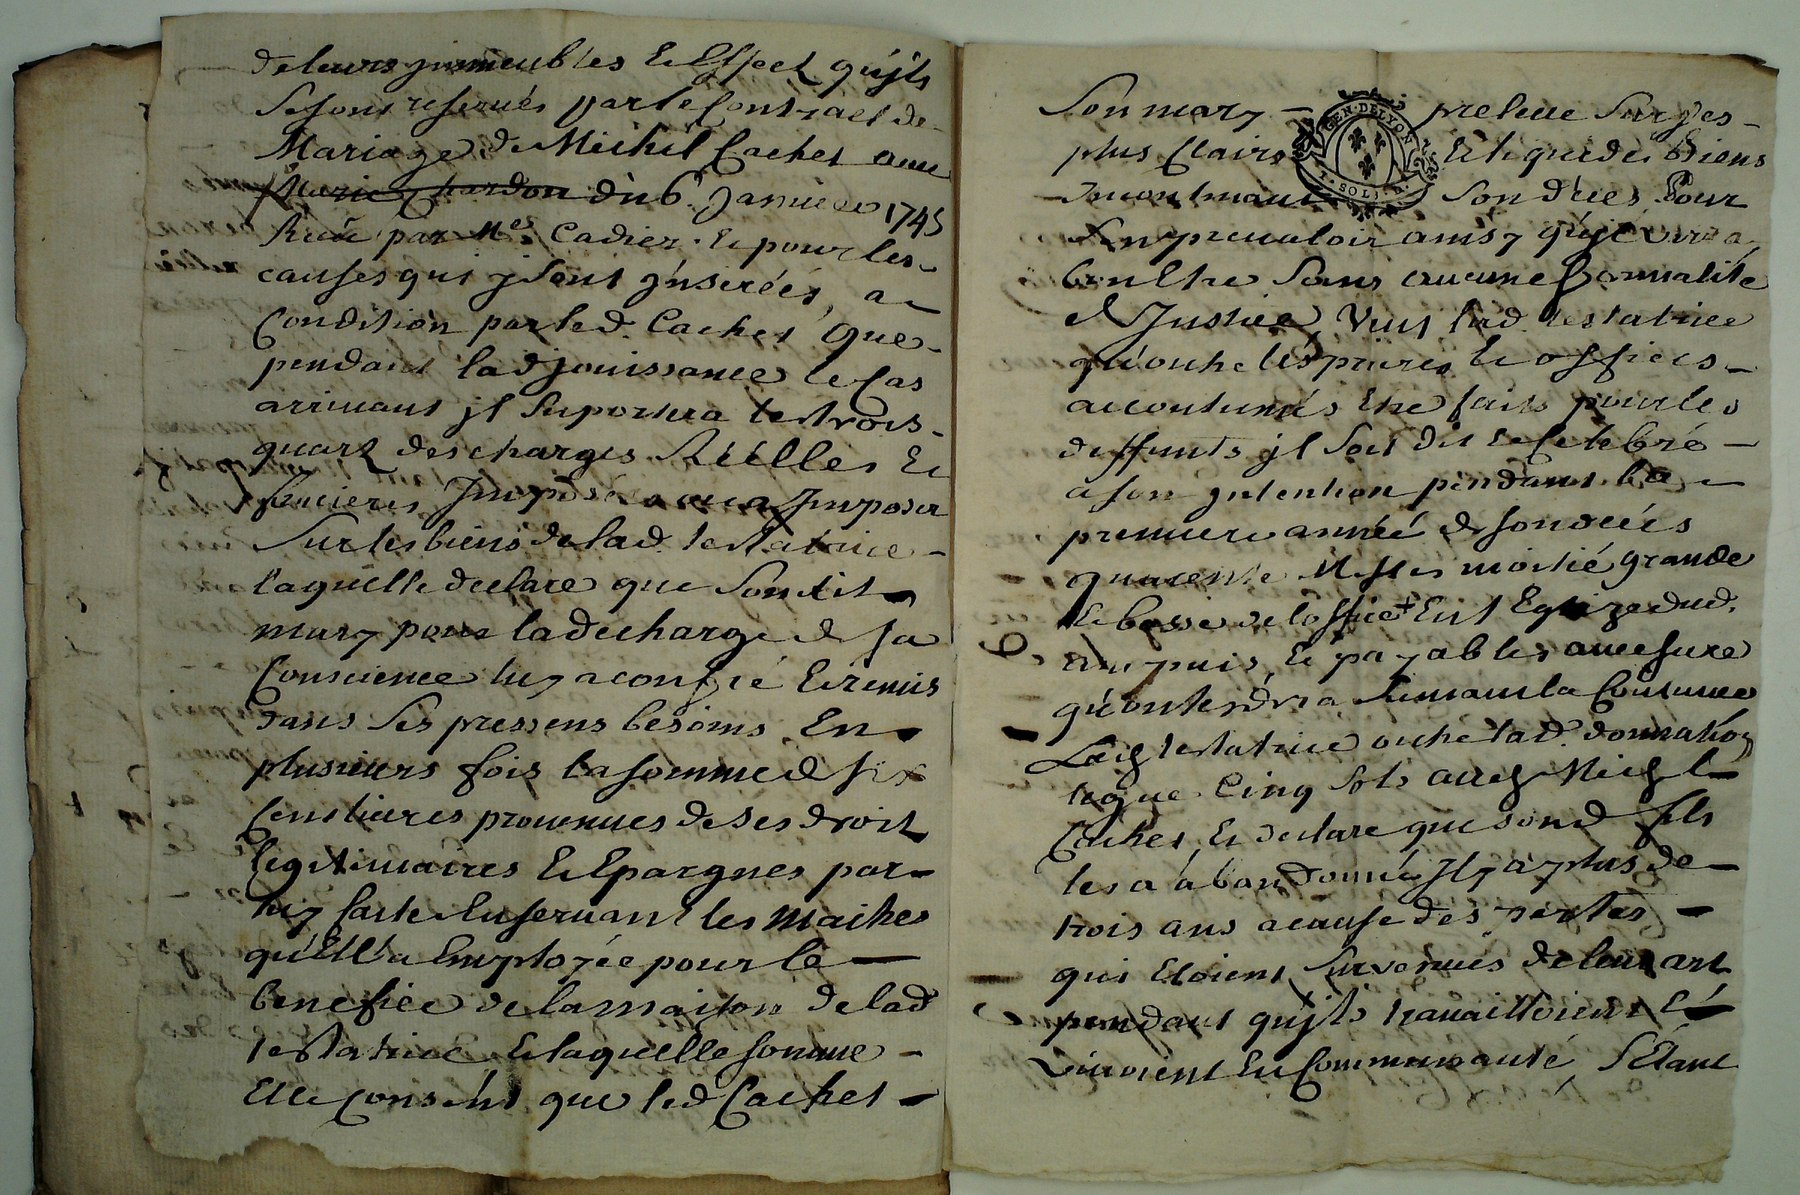 de leurs jmmeubles Et Effect qu'jls
se sont reservés par le Contract de
Mariage de Michel Cachet avec
Marie Chardon du 6. Janvier 1745
Receu par Me Cadier. Et pour les
causes qui y sont jnserées, a
Condition par led. Cachet que
pendant lad jouissance le Cas
arrivant jl suportera les trois
quart des charges Réelles Et
foncieres Imposées ou a Imposer
Sur les biens de lad. testatrice
laquelle declare que Sondit
mary pour la decharge de sa
Conscience luy a confié Et remis
dans ses pressens besoins En
plusieurs fois la somme de six
Cent livres provenues de ses droit
legitimaires Et Epargnes par
luy faite En servant les maitres
qu'Ell'a Employée pour le
benefice de la maison de lad
testatrice Et laquelle somme
Elle consent que led Cachet
Son mary preleve sur ses
plus Clairs Et liquides biens
Incontinant Son déces Pour
s'en prevaloir ainsy qu'jl verra
bon Etre sans aucune formalité
de Justice, Veut lad. testatrice
qu'outre les prieres Et offices
accoutumés Etre faits pour les
deffunts jl soit dit Et Celebré
a son jntention pendant la
premiere année de son décés
quarente Messes moitié grande
Et basse de l'office + En l Eglize dud.
puis, Et payables a mesure
qu'on les dira suivant la Coutume
Lad testatrice outre lad. donnation
legue Cinq sols aud Michel
Cachet Et declare que sond fils
les a abandonné Il y a plus de
trois ans a cause des pertes
qui Etoient survenues de leur art
pendant qu'jls travailloient Et
vivoient En Communauté, S'Etant
GEN. DE LYON
SOL